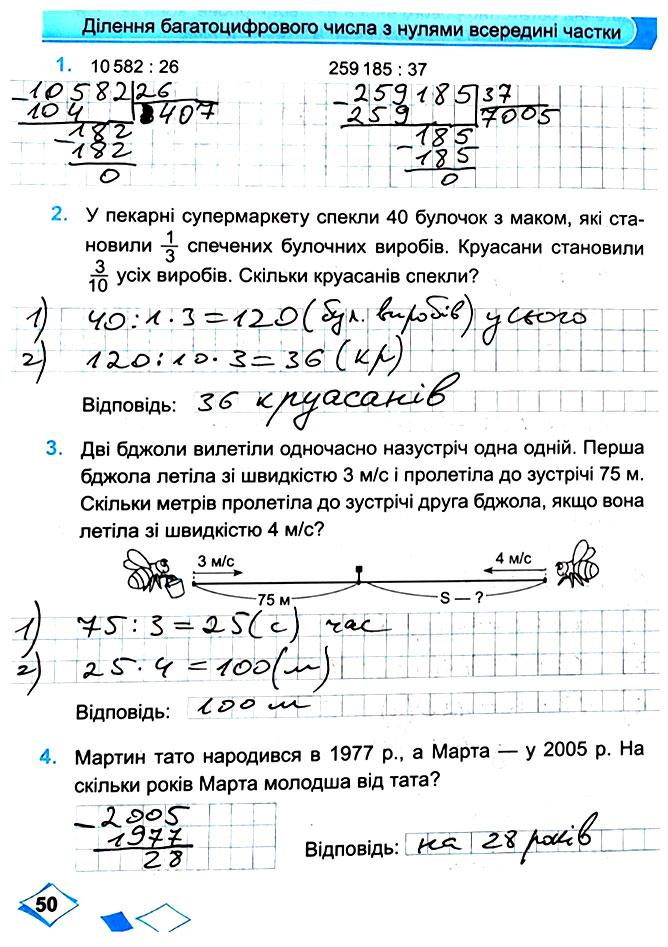 Ділення багатоцифрового числа з нулями всередині частки
1. 10 582 : 26 259 185 : 37
10582 26 259185 37
104 407 259 7005
182 185
182 185
0 0
2. У пекарні супермаркету спекли 40 булочок з маком, які ста-
новили 1/3 спечених булочних виробів. Круасани становили
3/10 усіх виробів. Скільки круасанів спекли?
1) 40 : 1 · 3 = 120 (бул. виробів) усього
2) 120 : 10 · 3 = 36 (кр)
Відповідь: 36 круасанів
3. Дві бджоли вилетіли одночасно назустріч одна одній. Перша
бджола летіла зі швидкістю 3 м/с і пролетіла до зустрічі 75 м.
Скільки метрів пролетіла до зустрічі друга бджола, якщо вона
летіла зі швидкістю 4 м/с?
3 м/с 4 м/с
75 м S — ?
1) 75 : 3 = 25 (с) час
2) 25 · 4 = 100 (м)
Відповідь: 100 м
4. Мартин тато народився в 1977 р., а Марта — у 2005 р. На
скільки років Марта молодша від тата?
– 2005
1977
28
Відповідь: на 28 років
50